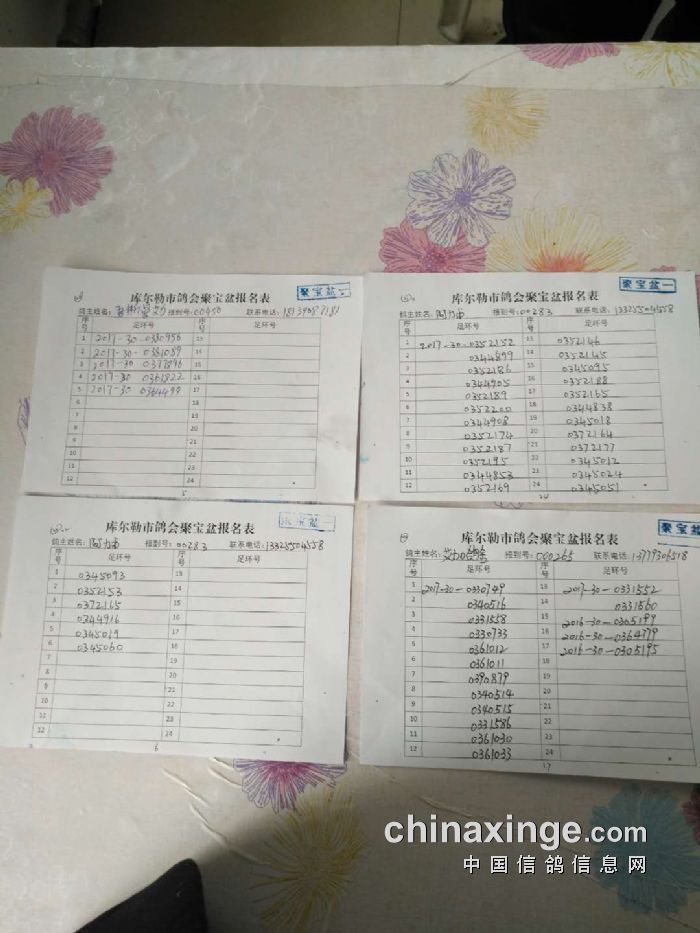 聚宝盆一
库尔勒市鸽会聚宝盆报名表
鸽主姓名: 报到号:00450 联系电话:
序号 足环号 序号 足环号
1 2017-30-0380956 13
2 2017-30-0381089 14
3 2017-30-0377896 15
4 2017-30 0361822 16
5 2017-30 0364499 17
6 18
7 19
8 20
9 21
10 22
11 23
12 24
5
聚宝盆一
库尔勒市鸽会聚宝盆报名表
鸽主姓名: 报到号:00283 联系电话:13325504558
序号 足环号 序号 足环号
1 2017-30-0352152 13 0352146
2 0344899 14 0352145
3 0352186 15 0345095
4 0344905 16 0352188
5 0352189 17 0352165
6 0352200 18 0344838
7 0344908 19 0345018
8 0352174 20 0372164
9 0352187 21 0372177
10 0352195 22 0345012
11 0344853 23 0345024
12 0352169 24 0345051
24
聚宝盆一
库尔勒市鸽会聚宝盆报名表
鸽主姓名: 报到号:00283 联系电话:13325504558
序号 足环号 序号 足环号
1 0345093 13
2 0352153 14
3 0372165 15
4 0344916 16
5 0345019 17
6 0345060 18
7 19
8 20
9 21
10 22
11 23
12 24
6
聚宝盆一
库尔勒市鸽会聚宝盆报名表
鸽主姓名: 报到号:000265 联系电话:13779306518
序号 足环号 序号 足环号
1 2017-30-0330749 13 2017-30-0331552
2 0340516 14 0331560
3 0331558 15 2016-30-0305197
4 0330733 16 2016-30-0364779
5 0361012 17 2016-30-0305195
6 0361011 18
7 0390879 19
8 0340514 20
9 0340515 21
10 0331586 22
11 0361030 23
12 0361033 24
17
chinaxinge.com
中国信鸽信息网